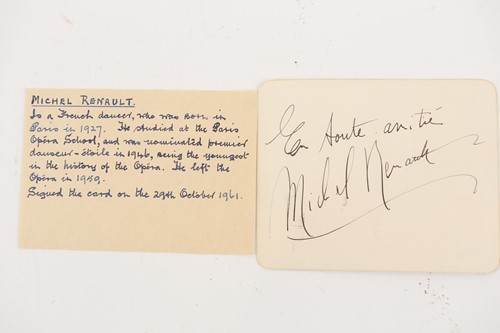 MICHEL RENAULT.
Is a French dancer, who was born in
Paris in 1927. He studied at the Paris
Opéra School, and was nominated premier
danseur-étoile in 1946, being the youngest
in the history of the Opéra. He left the
Opéra in 1959.
Signed the card on the 29th October 1961.
En toute amitié
Michel Renault